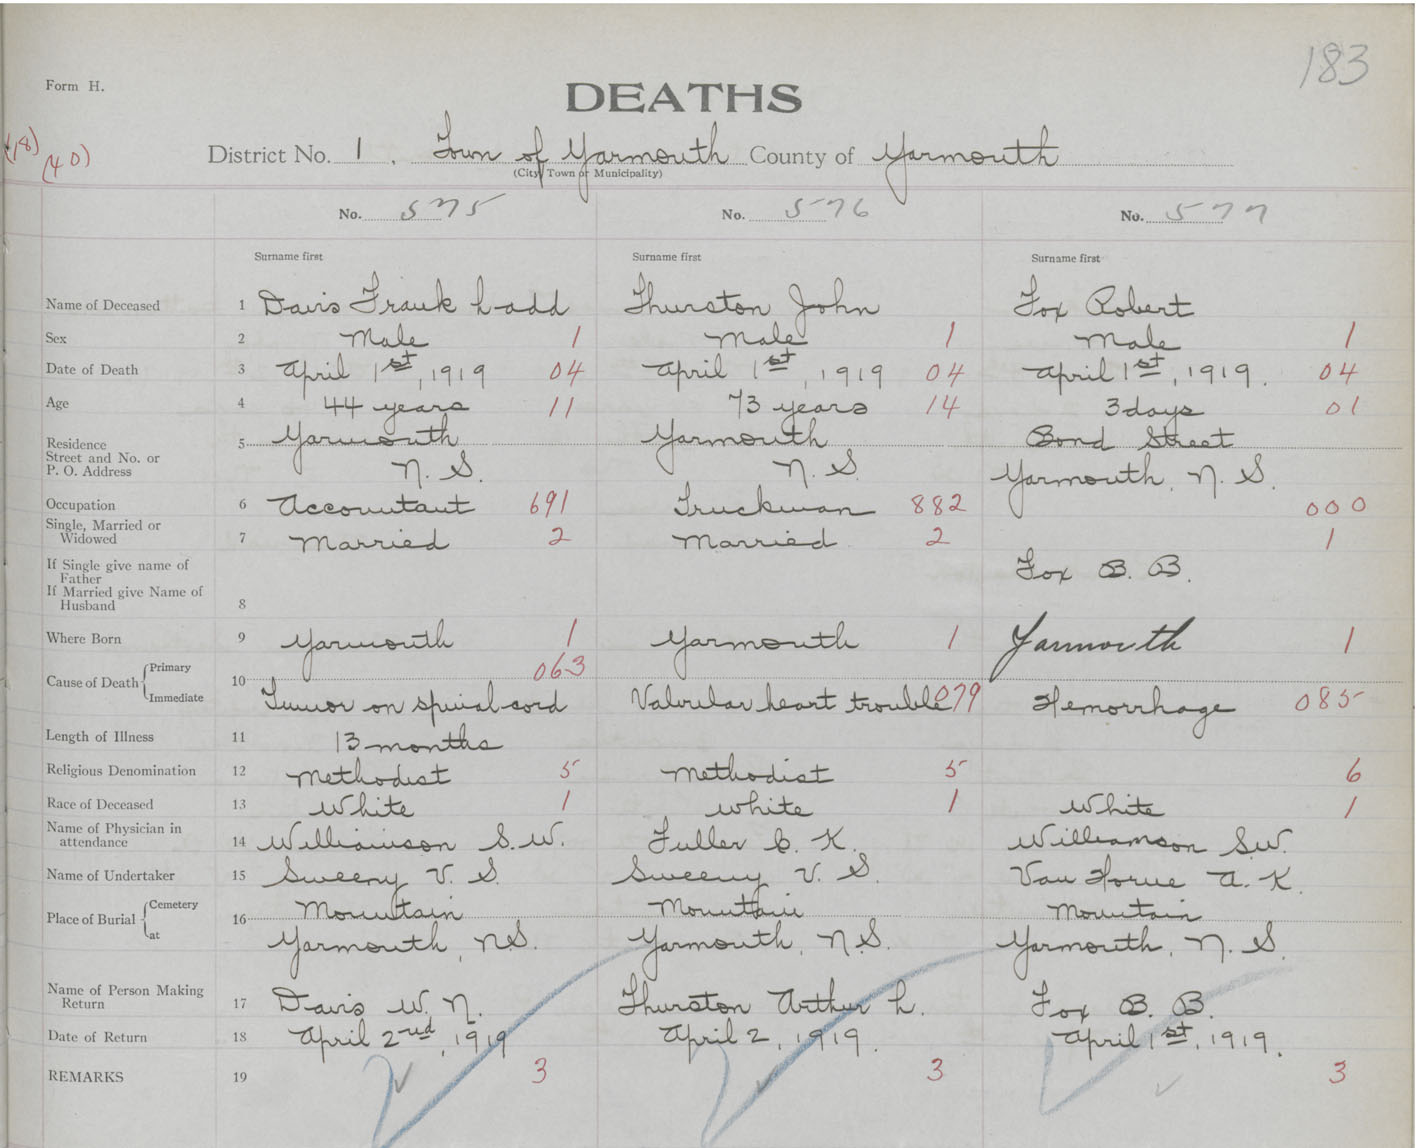 183
Form H.
DEATHS
(18)
(40)
District No. 1. Town of Yarmouth County of Yarmouth
(City Town or Municipality)
No. 575 No. 576 No. 577
Surname first Surname first Surname first
Name of Deceased 1 Davis Frank Ladd Thurston John Fox Robert
Sex 2 Male 1 Male 1 Male 1
Date of Death 3 April 1st, 1919 04 April 1st, 1919 04 April 1st, 1919. 04
Age 4 44 years 11 73 years 14 3 days 01
Residence 5 Yarmouth Yarmouth Bond Street
Street and No. or
P. O. Address N. S. N. S. Yarmouth, N. S.
Occupation 6 Accountant 691 Truckman 882 000
Single, Married or
Widowed 7 Married 2 Married 2 1
If Single give name of
Father Fox B. B.
If Married give Name of
Husband 8
Where Born 9 Yarmouth 1 Yarmouth 1 Yarmouth 1
Cause of Death { Primary 10 063
Immediate Tumor on spinal cord Valvular heart trouble 079 Hemorrhage 085
Length of Illness 11 13 months
Religious Denomination 12 Methodist 5 Methodist 5 6
Race of Deceased 13 White 1 White 1 White 1
Name of Physician in
attendance 14 Williamson S. W. Fuller C. K. Williamson S.W.
Name of Undertaker 15 Sweeny V. S. Sweeny V. S. Van Horne A. K.
Place of Burial { Cemetery 16 Mountain Mountain Mountain
at Yarmouth, N.S. Yarmouth, N.S. Yarmouth, N. S.
Name of Person Making
Return 17 Davis W. N. Thurston Arthur L. Fox B. B.
Date of Return 18 April 2nd, 1919 April 2, 1919. April 1st, 1919.
REMARKS 19 3 3 3